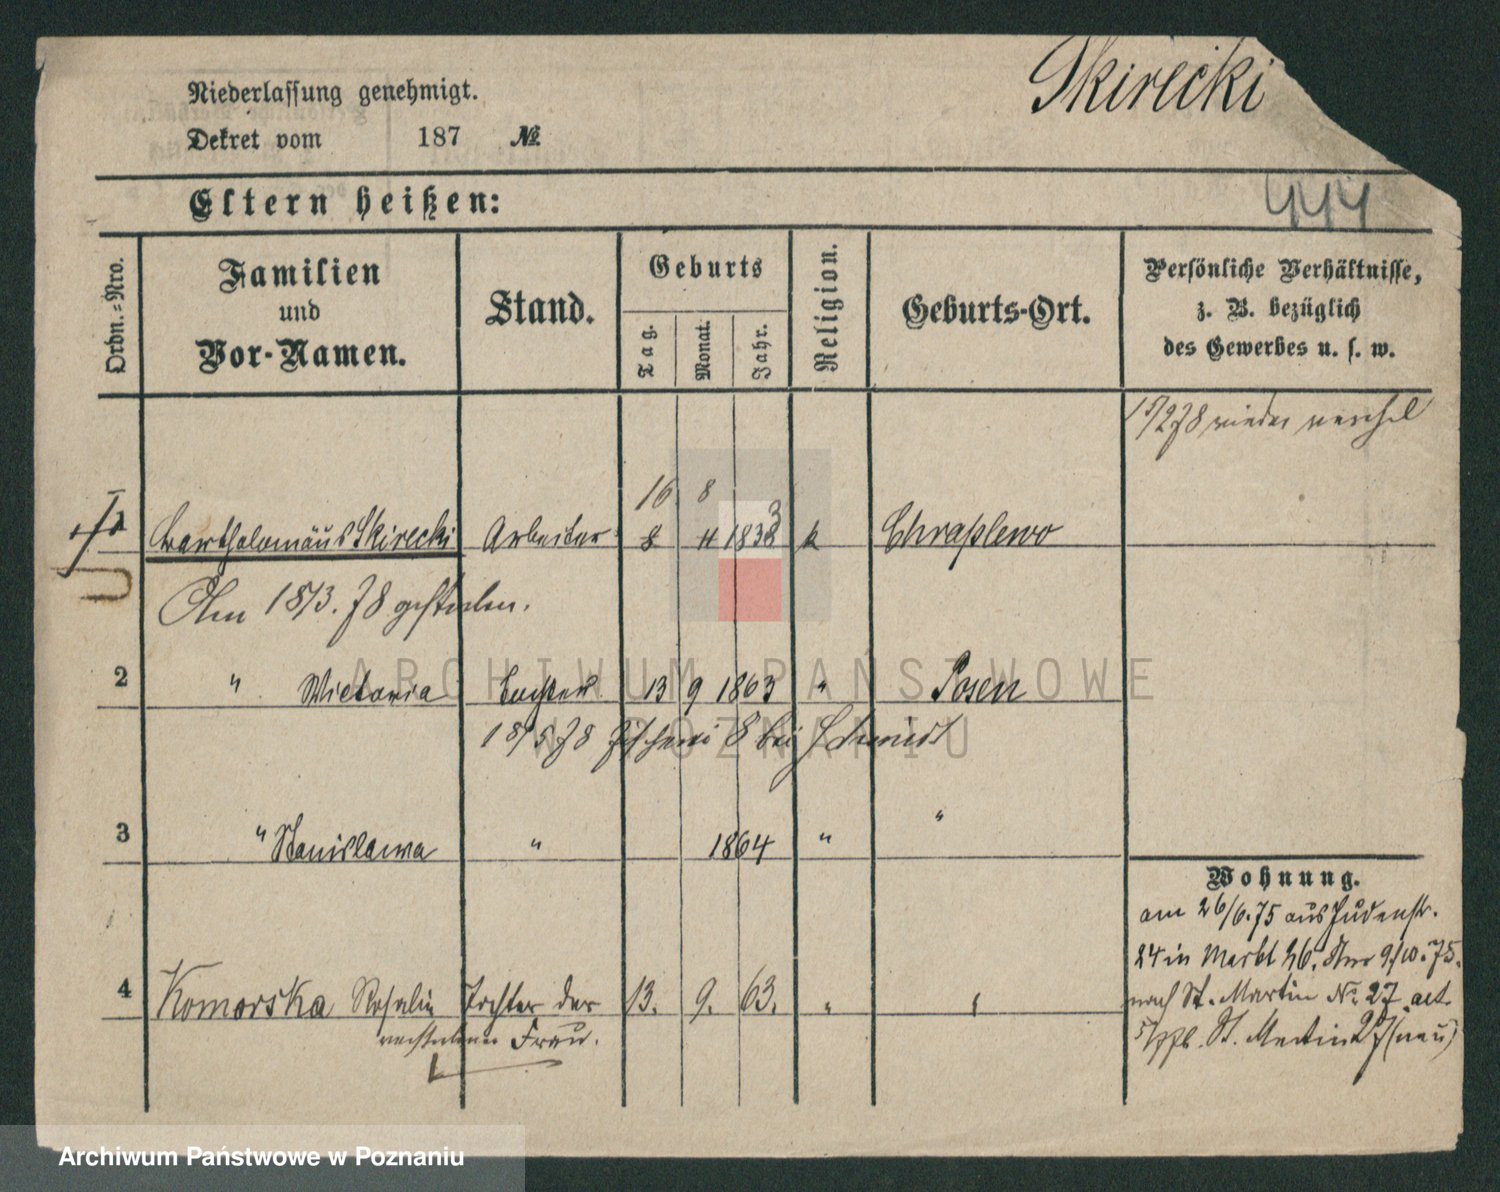 Skirecki
Niederlassung genehmigt.
Dekret vom 187 №
444
Eltern heißen:
Ordn.-Nro.
Familien
und
Vor-Namen.
Stand.
Geburts
Tag. Monat. Jahr.
Religion.
Geburts-Ort.
Persönliche Verhältnisse,
z. B. bezüglich
des Gewerbes u. s. w.
wieder
16 8
1 Bartholomäus Skirecki Arbeiter k Chraplewo
Am 18/3. 78 gestorben.
2 " Victoria Tochter 13 9 1863 " Posen
18/5 78 8 bei
3 " Stanislawa " 1864 " "
Wohnung.
am 26/6.75 aus Judenstr.
24 in Markt 46. 9/10.75.
nach St. Martin № 27 alt
St. Martin 27 (neu)
4 Komorska Rosalie Tochter der 13. 9. 63. " "
verstorbenen Frau.
ARCHIWUM PAŃSTWOWE
W POZNANIU
Archiwum Państwowe w Poznaniu